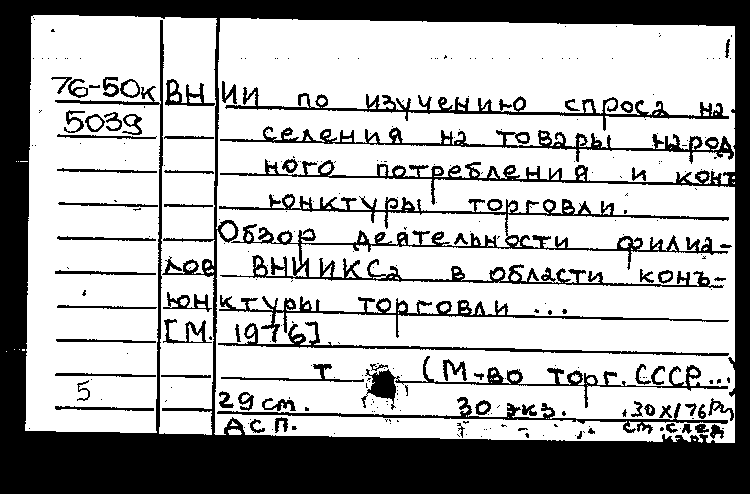 1
76-50к ВНИИ по изучению спроса на-
5039 селения на товары народ
ного потребления и конъ
юнктуры торговли.
Обзор деятельности филиа-
лов ВНИИКСа в области конъ-
юнктуры торговли ...
[М. 1976]
т (М-во торг. СССР...)
5 29 ст. 30 экз.
АСП. ст. след